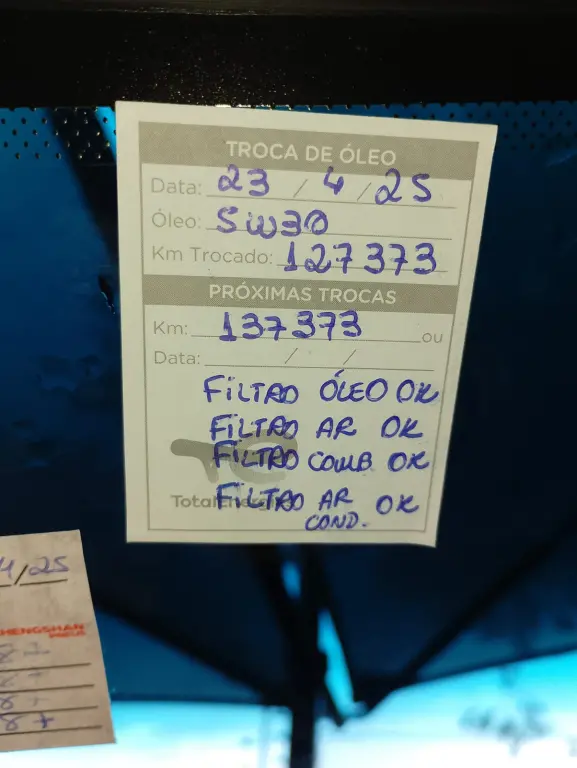 TROCA DE ÓLEO
Data: 23 / 4 / 25
Óleo: 5W30
Km Trocado: 127373
PRÓXIMAS TROCAS
Km: 137373 ou
Data: / /
FILTRO ÓLEO OK
FILTRO AR OK
FILTRO COMB. OK
TotalEnergies
FILTRO AR OK
COND.
4/25